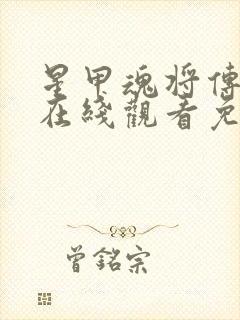 星甲魂将傳
在綫觀看免
曾銘宗